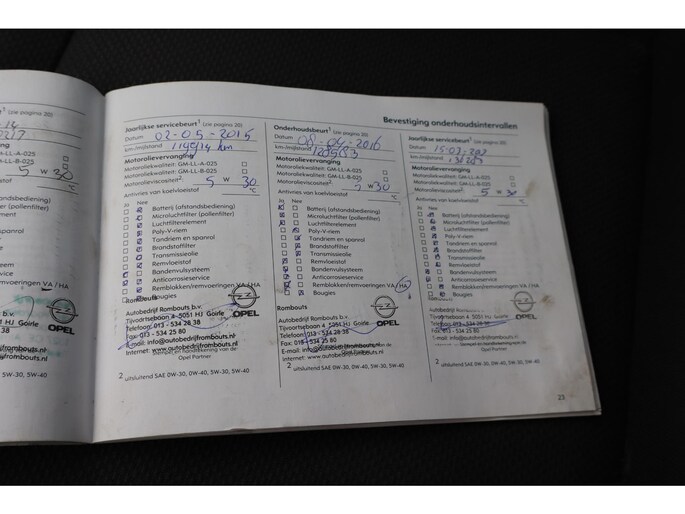 Bevestiging onderhoudsintervallen
Jaarlijkse servicebeurt¹ (zie pagina 20)
Datum 02-05-2015
km-/mijlstand km
Motorolievervanging
Motoroliekwaliteit: GM-LL-A-025
GM-LL-B-025
Motorolieviscositeit² 5 W 30
Antivries van koelvloeistof °C
Ja Nee
Batterij (afstandsbediening)
Microluchtfilter (pollenfilter)
Luchtfilterelement
Poly-V-riem
Tandriem en spanrol
Brandstoffilter
Transmissieolie
Remvloeistof
Bandenvulsysteem
Anticorrosieservice
Remblokken/remvoeringen VA / HA
Bougies
Rombouts
Autobedrijf Rombouts b.v.
Tijvoortsebaan 4 5051 HJ Goirle
Telefoon: 013 - 534 28 38
Fax: 013 - 534 25 80
E-mail: info@autobedrijfrombouts.nl
Internet: www.autobedrijfrombouts.nl
OPEL
Opel Partner
2 uitsluitend SAE 0W-30, 0W-40, 5W-30, 5W-40
Onderhoudsbeurt¹ (zie pagina 20)
Datum 08-04-2016
km-/mijlstand
Motorolievervanging
Motoroliekwaliteit: GM-LL-A-025
GM-LL-B-025
Motorolieviscositeit² 5 W 30
Antivries van koelvloeistof °C
Ja Nee
Batterij (afstandsbediening)
Microluchtfilter (pollenfilter)
Luchtfilterelement
Poly-V-riem
Tandriem en spanrol
Brandstoffilter
Transmissieolie
Remvloeistof
Bandenvulsysteem
Anticorrosieservice
Remblokken/remvoeringen VA / HA
Bougies
Rombouts
Autobedrijf Rombouts b.v.
Tijvoortsebaan 4 5051 HJ Goirle
Telefoon: 013 - 534 28 38
Fax: 013 - 534 25 80
E-mail: info@autobedrijfrombouts.nl
Internet: www.autobedrijfrombouts.nl
OPEL
Opel Partner
2 uitsluitend SAE 0W-30, 0W-40, 5W-30, 5W-40
Jaarlijkse servicebeurt¹ (zie pagina 20)
Datum
km-/mijlstand
Motorolievervanging
Motoroliekwaliteit: GM-LL-A-025
GM-LL-B-025
Motorolieviscositeit² 5 W 30
Antivries van koelvloeistof °C
Ja Nee
Batterij (afstandsbediening)
Microluchtfilter (pollenfilter)
Luchtfilterelement
Poly-V-riem
Tandriem en spanrol
Brandstoffilter
Transmissieolie
Remvloeistof
Bandenvulsysteem
Anticorrosieservice
Remblokken/remvoeringen VA / HA
Bougies
Autobedrijf Rombouts b.v.
Tijvoortsebaan 4 5051 HJ Goirle
Telefoon: 013 - 534 28 38
Fax: 013 - 534 25 80
E-mail: info@autobedrijfrombouts.nl
OPEL
Opel Partner
2 uitsluitend SAE 0W-30, 0W-40, 5W-30, 5W-40
23